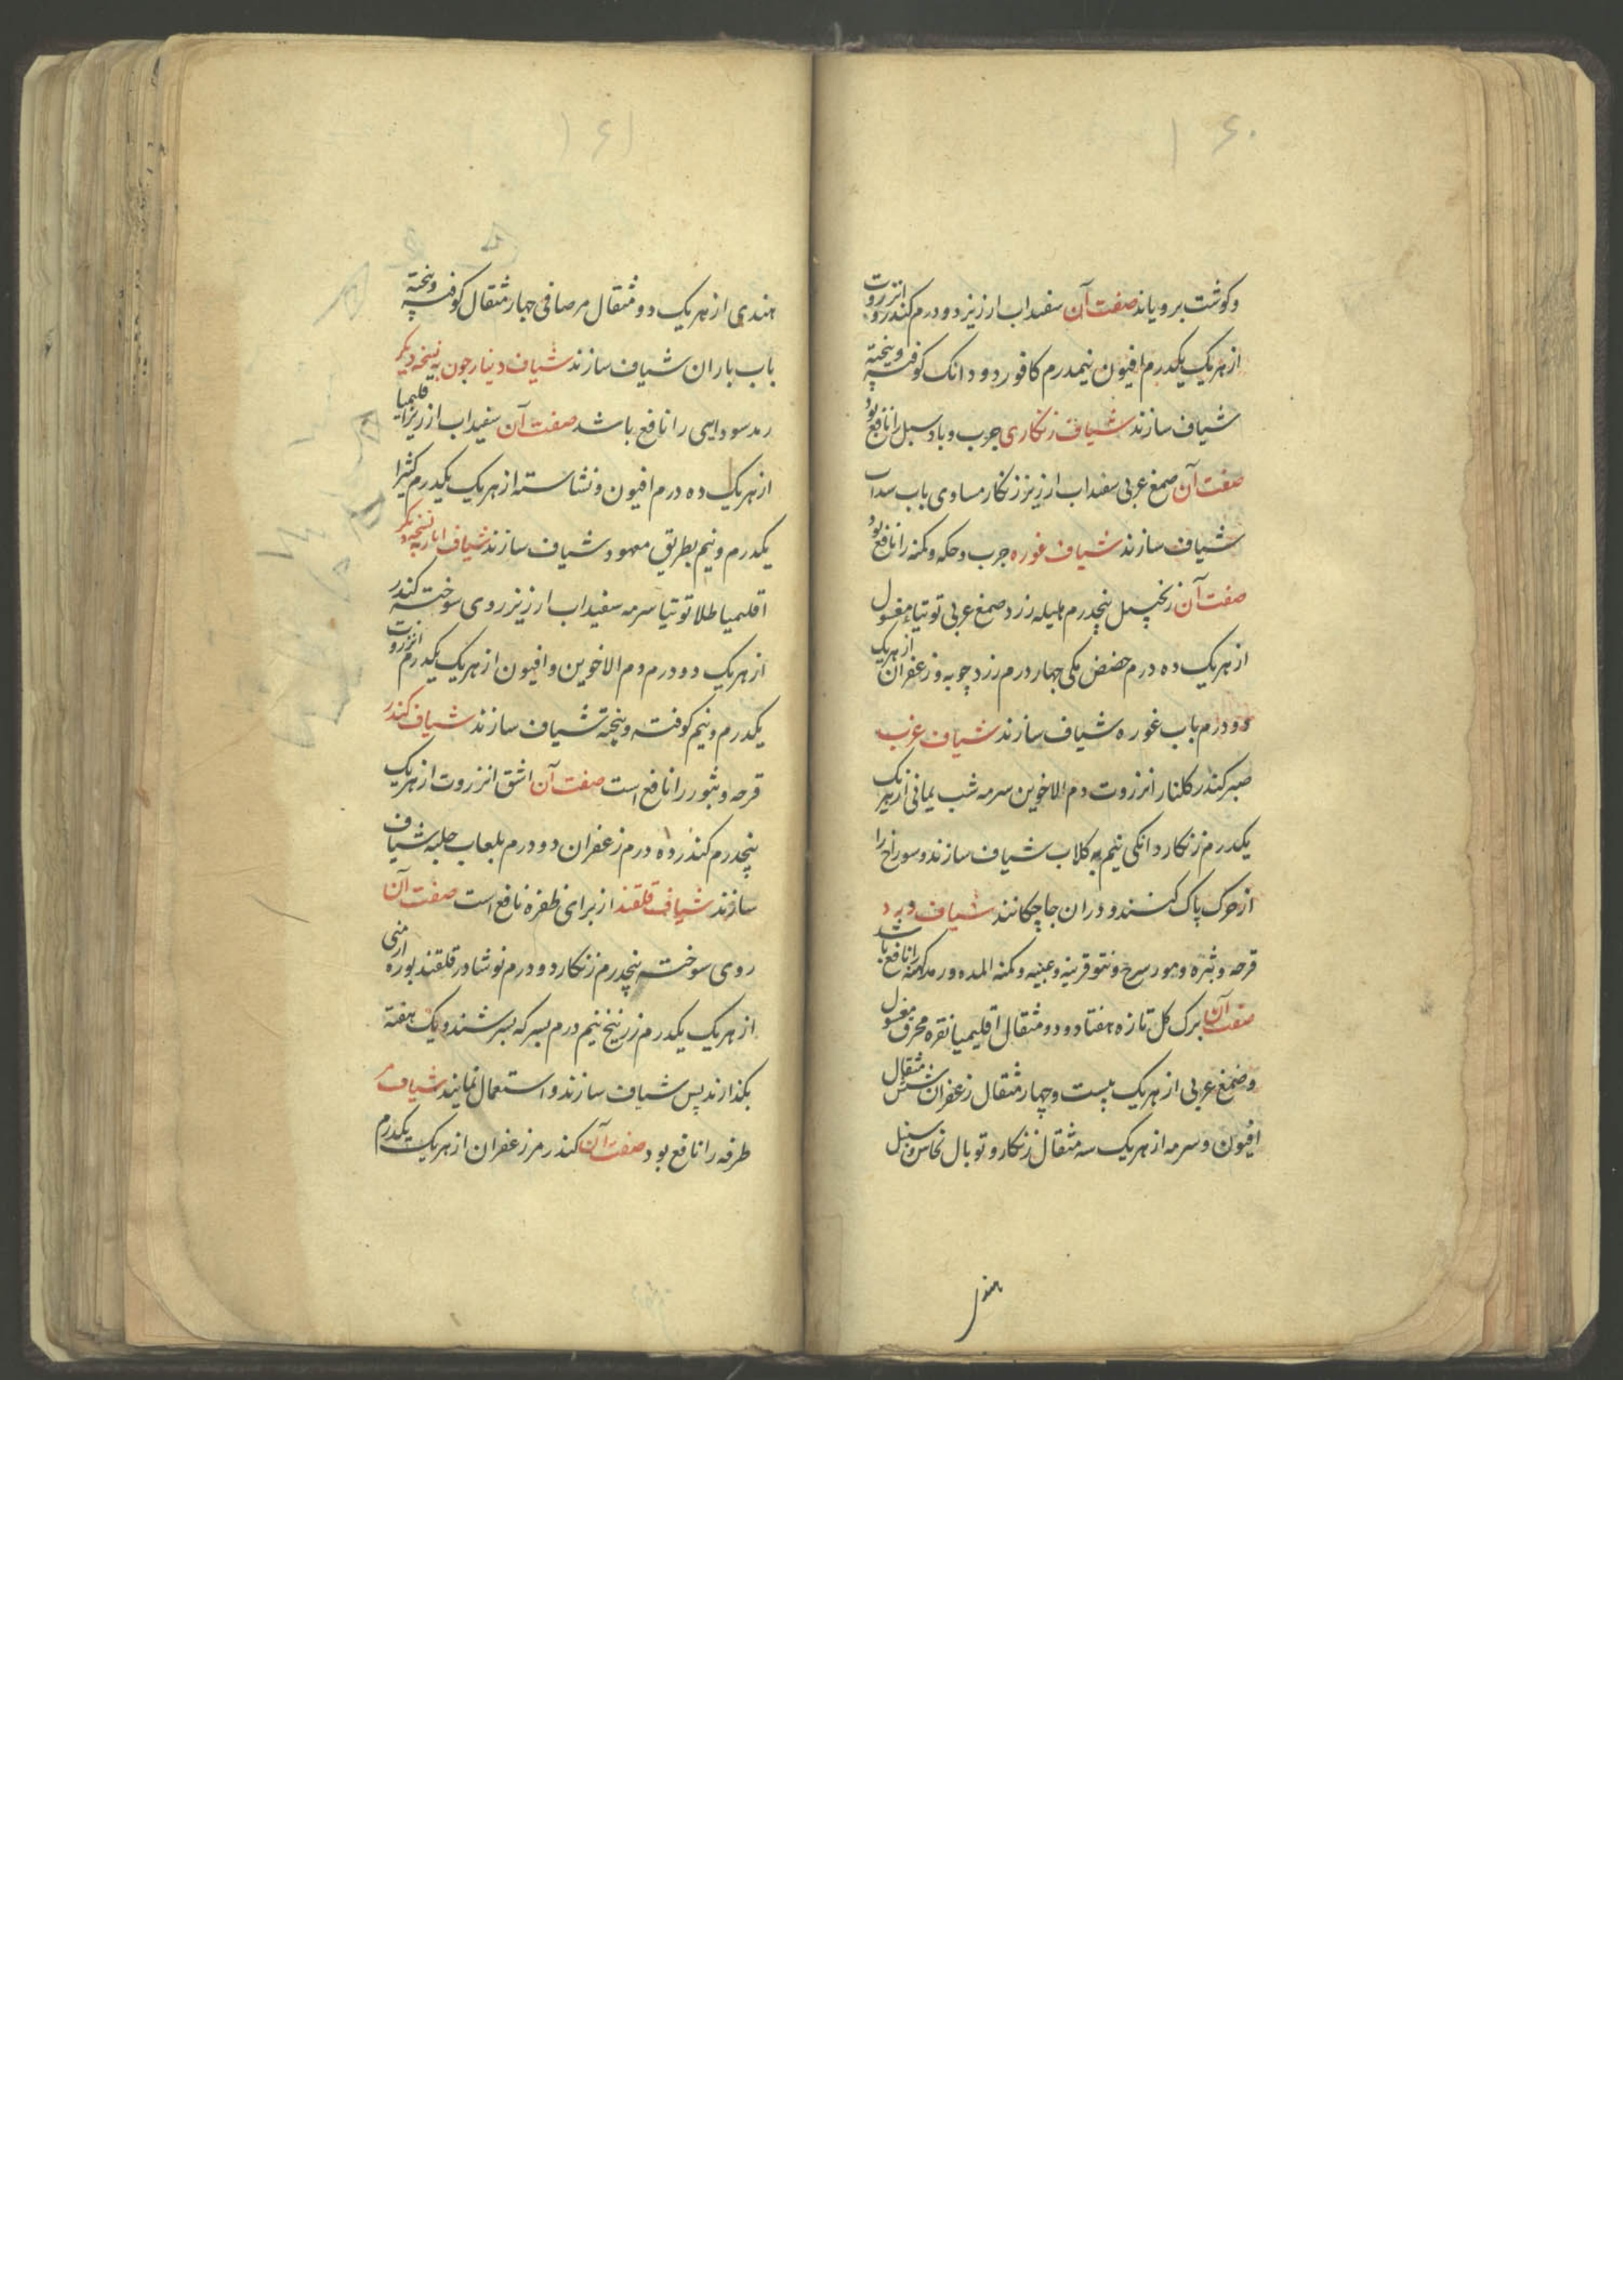 ۱۶۰
وکوشت برویاند صفت آن سفیداب ارزیز دو درم کندر انزروت
از هریک یکدرم افیون نیمدرم کافور دو دانک کوفته و بیخته
شیاف سازند شیاف زنکاری جرب و باد سبل را نافع بود
صفت آن صمغ عربی سفیداب ارزیز زنکار مساوی باب سداب
شیاف سازند شیاف غوره جرب و حکه و کمنه را نافع بود
صفت آن زنجبیل پنجدرم هلیله زرد صمغ عربی توتیاء مغسول
از هریک ده درم حضض مکی چهار درم زرد چوبه و زعفران از هریک
دو درم باب غوره شیاف سازند شیاف غرب
صبر کندر کلنار انزروت دم الاخوین سرمه شب یمانی از هریک
یکدرم زنکار دانکی نیم به کلاب شیاف سازند و سوراخ را
از چرک پاک کنند و دران جا چکانند شیاف ورد
قرحه و بثره و مورسرج و نتو قرینه و عنبیه و کمنه المده و رمد کهنه را نافع باشد
صفت آن برک کل تازه هفتاد و دو مثقال اقلیمیا نقره محرق مغسول
و صمغ عربی از هریک بیست و چهار مثقال زعفران شش مثقال
افیون و سرمه از هریک سه مثقال زنکار و توبال نحاس و سنبل
هندی
۱۶۱
هندی از هریک دو مثقال مر صافی چهار مثقال کوفته و بیخته
باب باران شیاف سازند شیاف دینارجون به نسخه دیکر
رمد سودایی را نافع باشد صفت آن سفیداب ارزیز اقلیمیا
از هریک ده درم افیون و نشاسته از هریک یکدرم کتیرا
یکدرم و نیم بطریق معهود شیاف سازند شیاف ابار به نسخه دیکر
اقلیمیا طلا توتیا سرمه سفیداب ارزیز روی سوخته کندر
از هریک دو درم دم الاخوین و افیون از هریک یکدرم انزروت
یکدرم و نیم کوفته و بیخته شیاف سازند شیاف کندر
قرحه و بثور را نافع است صفت آن اشق انزروت از هریک
پنجدرم کندر ده درم زعفران دو درم بلعاب حلبه شیاف
سازند شیاف قلقند از برای ظفره نافع است صفت آن
روی سوخته پنجدرم زنکار دو درم نوشادر قلقند بوره ارمنی
از هریک یکدرم زرنیخ نیم درم بسرکه بسرشند و یک هفته
بکذارند پس شیاف سازند و استعمال نمایند شیاف مر
طرفه را نافع بود صفت آن کندر مر زعفران از هریک یکدرم